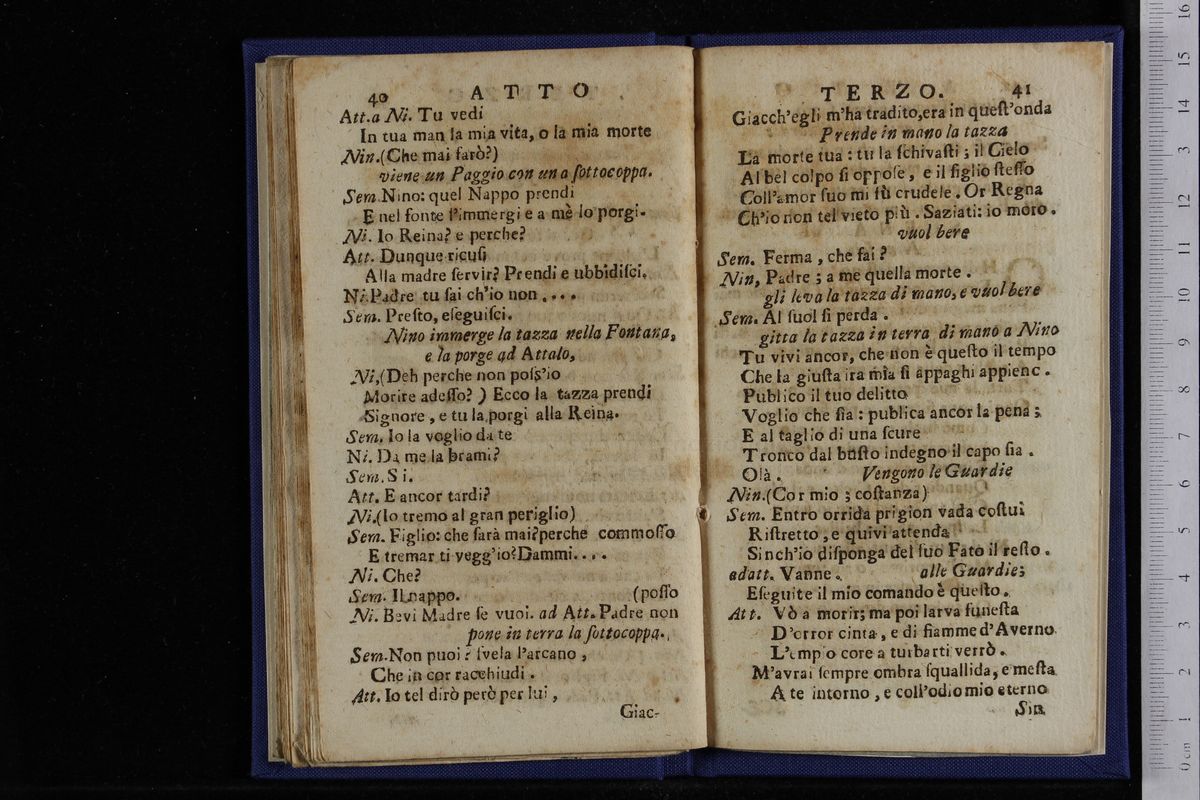 40 ATTO
Att.a Ni. Tu vedi
In tua man la mia vita, o la mia morte
Nin.(Che mai farò?)
viene un Paggio con una ſottocoppa.
Sem.Nino: quel Nappo prendi
E nel fonte l'immergi e a mè lo porgi.
Ni. Io Reina? e perche?
Att. Dunque ricuſi
Alla madre ſervir? Prendi e ubbidiſci.
Ni.Padre tu ſai ch'io non . . . .
Sem. Preſto, eſeguiſci.
Nino immerge la tazza nella Fontana,
e la porge ad Attalo,
Ni,(Deh perche non poſs'io
Morire adeſſo? ) Ecco la tazza prendi
Signore , e tu la porgi alla Reina.
Sem. Io la voglio da te
Ni. Da me la brami?
Sem. S i.
Att. E ancor tardi?
Ni.(Io tremo al gran periglio)
Sem. Figlio: che ſarà mai?perche commoſſo
E tremar ti vegg'io?Dammi. . . .
Ni. Che?
Sem. Il nappo. (poſſo
Ni. Bevi Madre ſe vuoi. ad Att. Padre non
pone in terra la ſottocoppa.
Sem.Non puoi : ſvela l'arcano ,
Che in cor racchiudi .
Att. Io tel dirò però per lui ,
Giac-
TERZO. 41
Giacch'egli m'ha tradito,era in queſt'onda
Prende in mano la tazza
La morte tua : tu la ſchivaſti ; il Cielo
Al bel colpo ſi oppoſe , e il figlio ſteſſo
Coll'amor ſuo mi fù crudele . Or Regna
Ch'io non tel vieto più . Saziati: io moro .
vuol bere
Sem. Ferma , che fai ?
Nin, Padre ; a me quella morte .
gli leva la tazza di mano, e vuol bere
Sem. Al ſuol ſi perda .
gitta la tazza in terra di mano a Nino
Tu vivi ancor, che non è queſto il tempo
Che la giuſta ira mia ſi appaghi appienc .
Publico il tuo delitto
Voglio che ſia : publica ancor la pena ;
E al taglio di una ſcure
Tronco dal buſto indegno il capo ſia .
Olà . Vengono le Guardie
Nin.(Cor mio ; coſtanza)
Sem. Entro orrida prigion vada coſtui
Riſtretto , e quivi attenda
Sinch'io diſponga del ſuo Fato il reſto .
adatt. Vanne . alle Guardie;
Eſeguite il mio comando è queſto .
Att. Vò a morir; ma poi larva funeſta
D'orror cinta , e di fiamme d'Averno
L'empio core a turbarti verrò .
M'avrai ſempre ombra ſquallida, e meſta
A te intorno , e coll'odio mio eterno
Sin